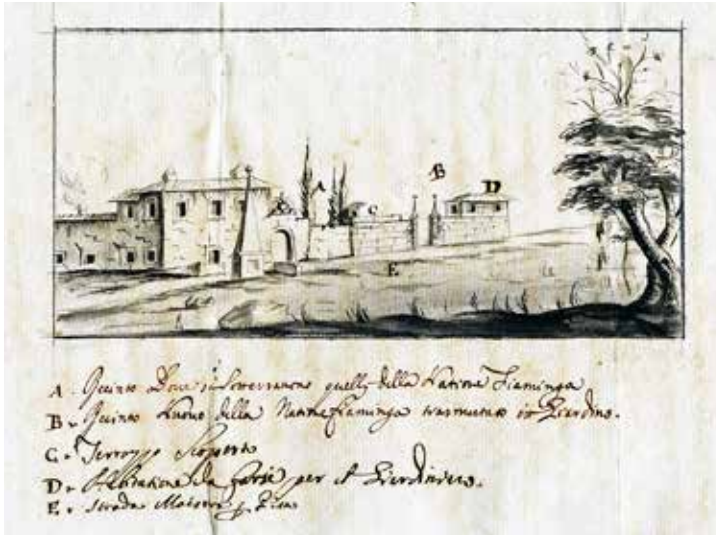 A
B
C
D
E
A. Quinto Dove si Sotterranono quelli della Natione Fiaminga
B. Quinto Nuovo della Natione Fiaminga trasmutato in Giardino.
C. Terrazzo Scoperto
D. Habitatione da farsi per il Giardiniero.
E. Strada Maestra Pisa